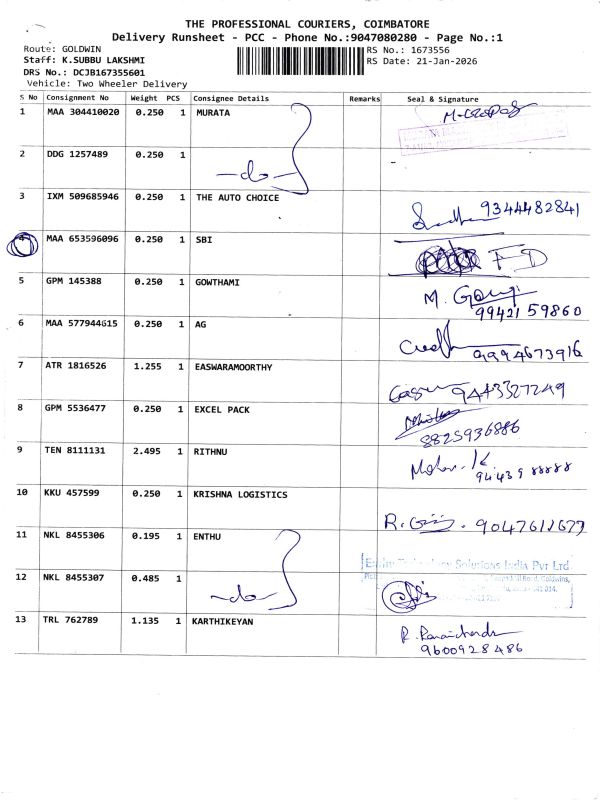 THE PROFESSIONAL COURIERS, COIMBATORE
Delivery Runsheet - PCC - Phone No.:9047080280 - Page No.:1
Route: GOLDWIN RS No.: 1673556
Staff: K.SUBBU LAKSHMI RS Date: 21-Jan-2026
DRS No.: DCJB167355601
Vehicle: Two Wheeler Delivery
S No Consignment No Weight PCS Consignee Details Remarks Seal & Signature
1 MAA 304410020 0.250 1 MURATA
2 DDG 1257489 0.250 1 -do-
3 IXM 509685946 0.250 1 THE AUTO CHOICE 9344482841
4 MAA 653596096 0.250 1 SBI FD
5 GPM 145388 0.250 1 GOWTHAMI M.
99421 59860
6 MAA 577944615 0.250 1 AG 9994673916
7 ATR 1816526 1.255 1 EASWARAMOORTHY
8 GPM 5536477 0.250 1 EXCEL PACK
8825936886
9 TEN 8111131 2.495 1 RITHNU Mohan. K
94439 88888
10 KKU 457599 0.250 1 KRISHNA LOGISTICS
11 NKL 8455306 0.195 1 ENTHU
Solutions India Pvt Ltd
12 NKL 8455307 0.485 1 -do-
13 TRL 762789 1.135 1 KARTHIKEYAN
9600928486